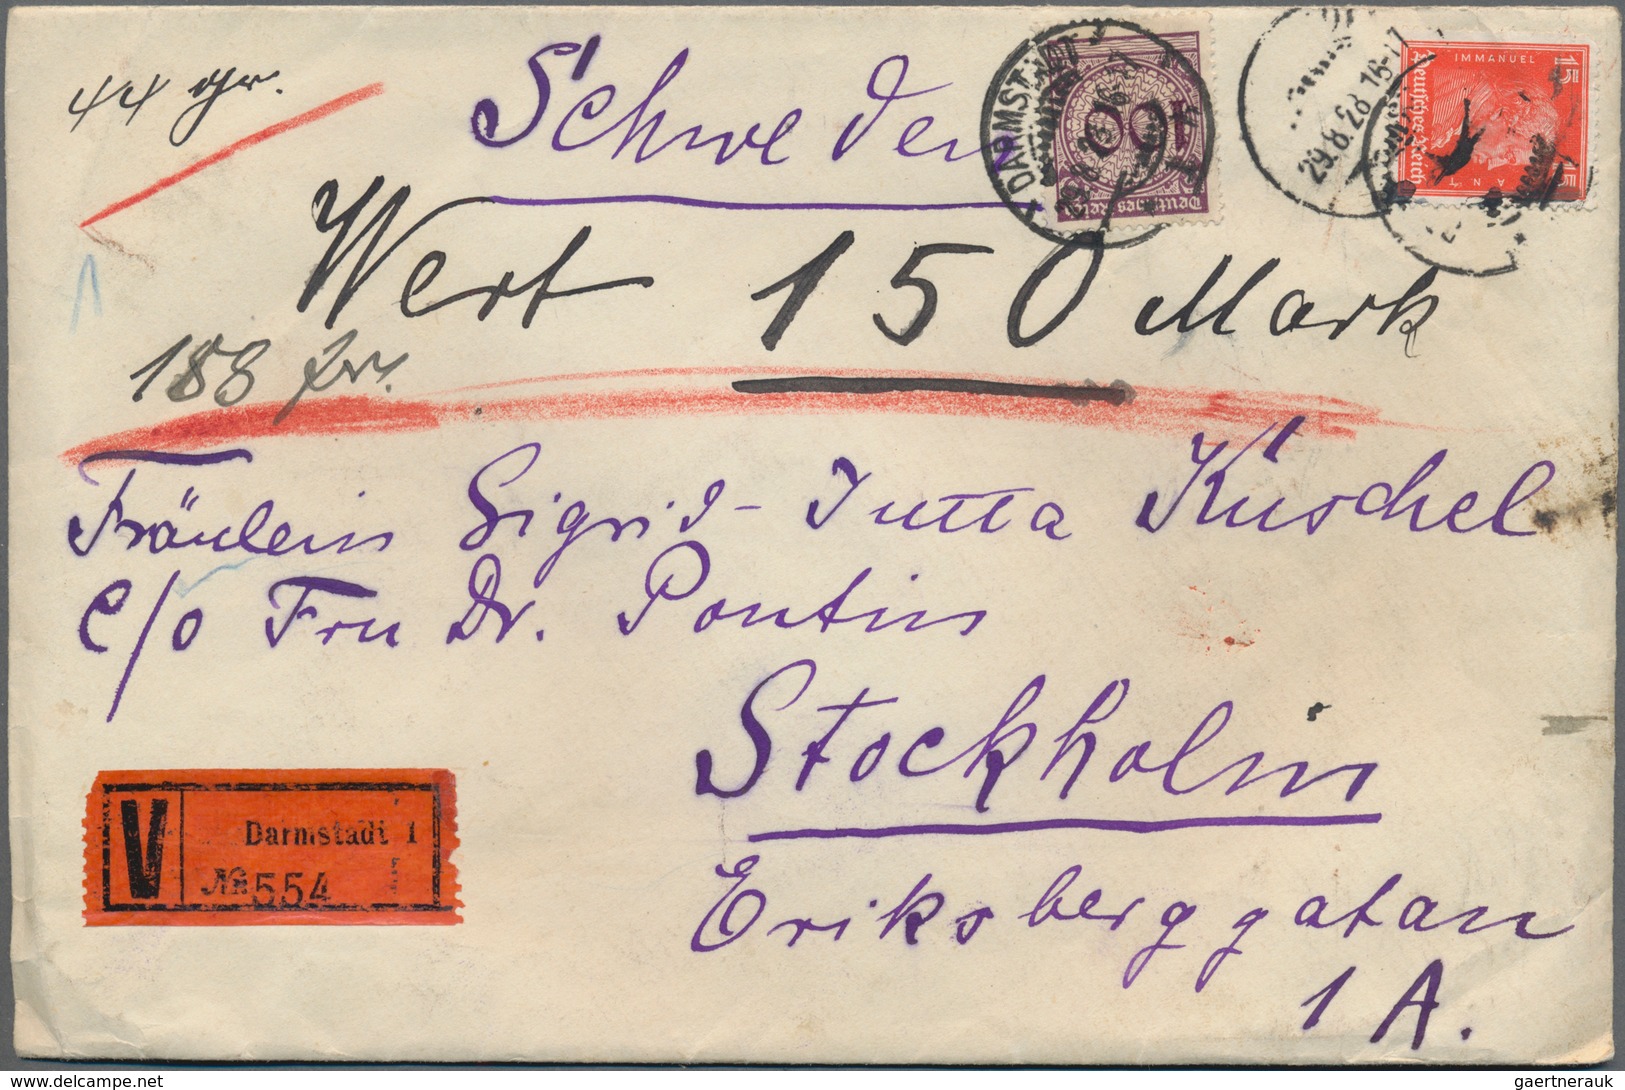 44 gr.
Schweden
DARMSTADT
100
Deutsches Reich
29.8.28 16-17
IMMANUEL
15
KANT
15
Deutsches Reich
Wert 150 Mark
188 fr.
Fräulein Sigrid-Jutta Küschel
c/o Fru Dr. Pontin
Stockholm
V
Darmstadt 1
№ 554
Eriksberggatan
1 A.
www.delcampe.net
gaertnerauk